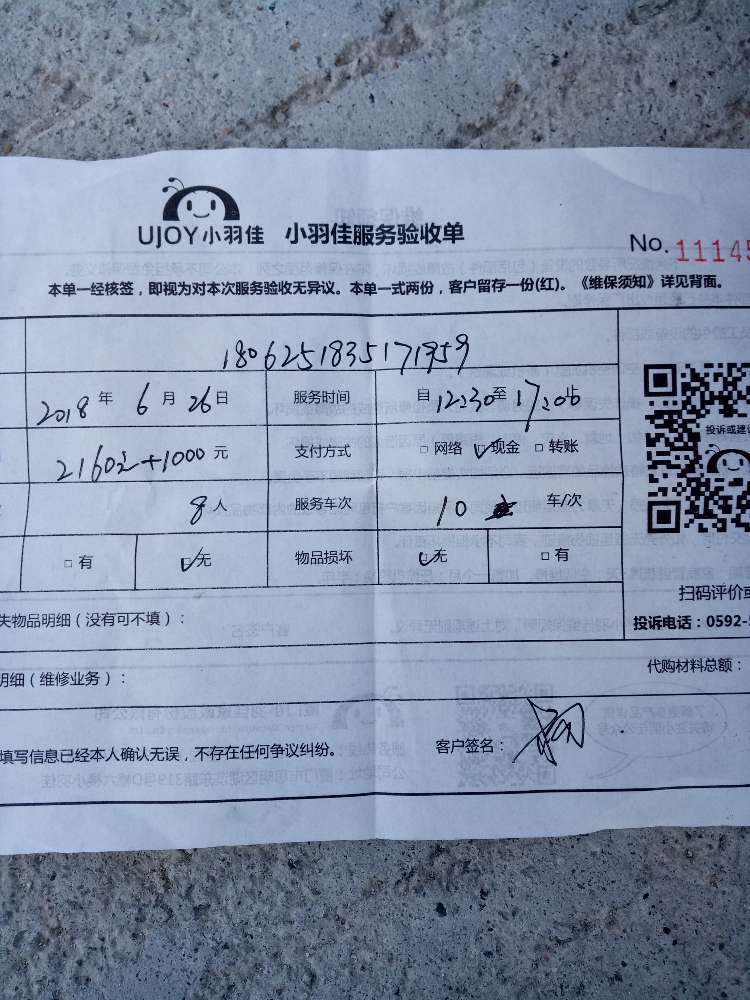 UJOY小羽佳 小羽佳服务验收单
No. 11145
本单一经核签，即视为对本次服务验收无异议。本单一式两份，客户留存一份(红)。《维保须知》详见背面。
1806251835171959
2018 年 6 月 26 日 服务时间 自 12:30 至 17:06 止
投诉或建议
2160元+1000 元 支付方式 □ 网络 □ 现金 □ 转账
8 人 服务车次 10 车/次
□ 有 □ 无 物品损坏 □ 无 □ 有
扫码评价或
失物品明细（没有可不填）：
投诉电话：0592-5
明细（维修业务）：
代购材料总额：
填写信息已经本人确认无误，不存在任何争议纠纷。 客户签名：